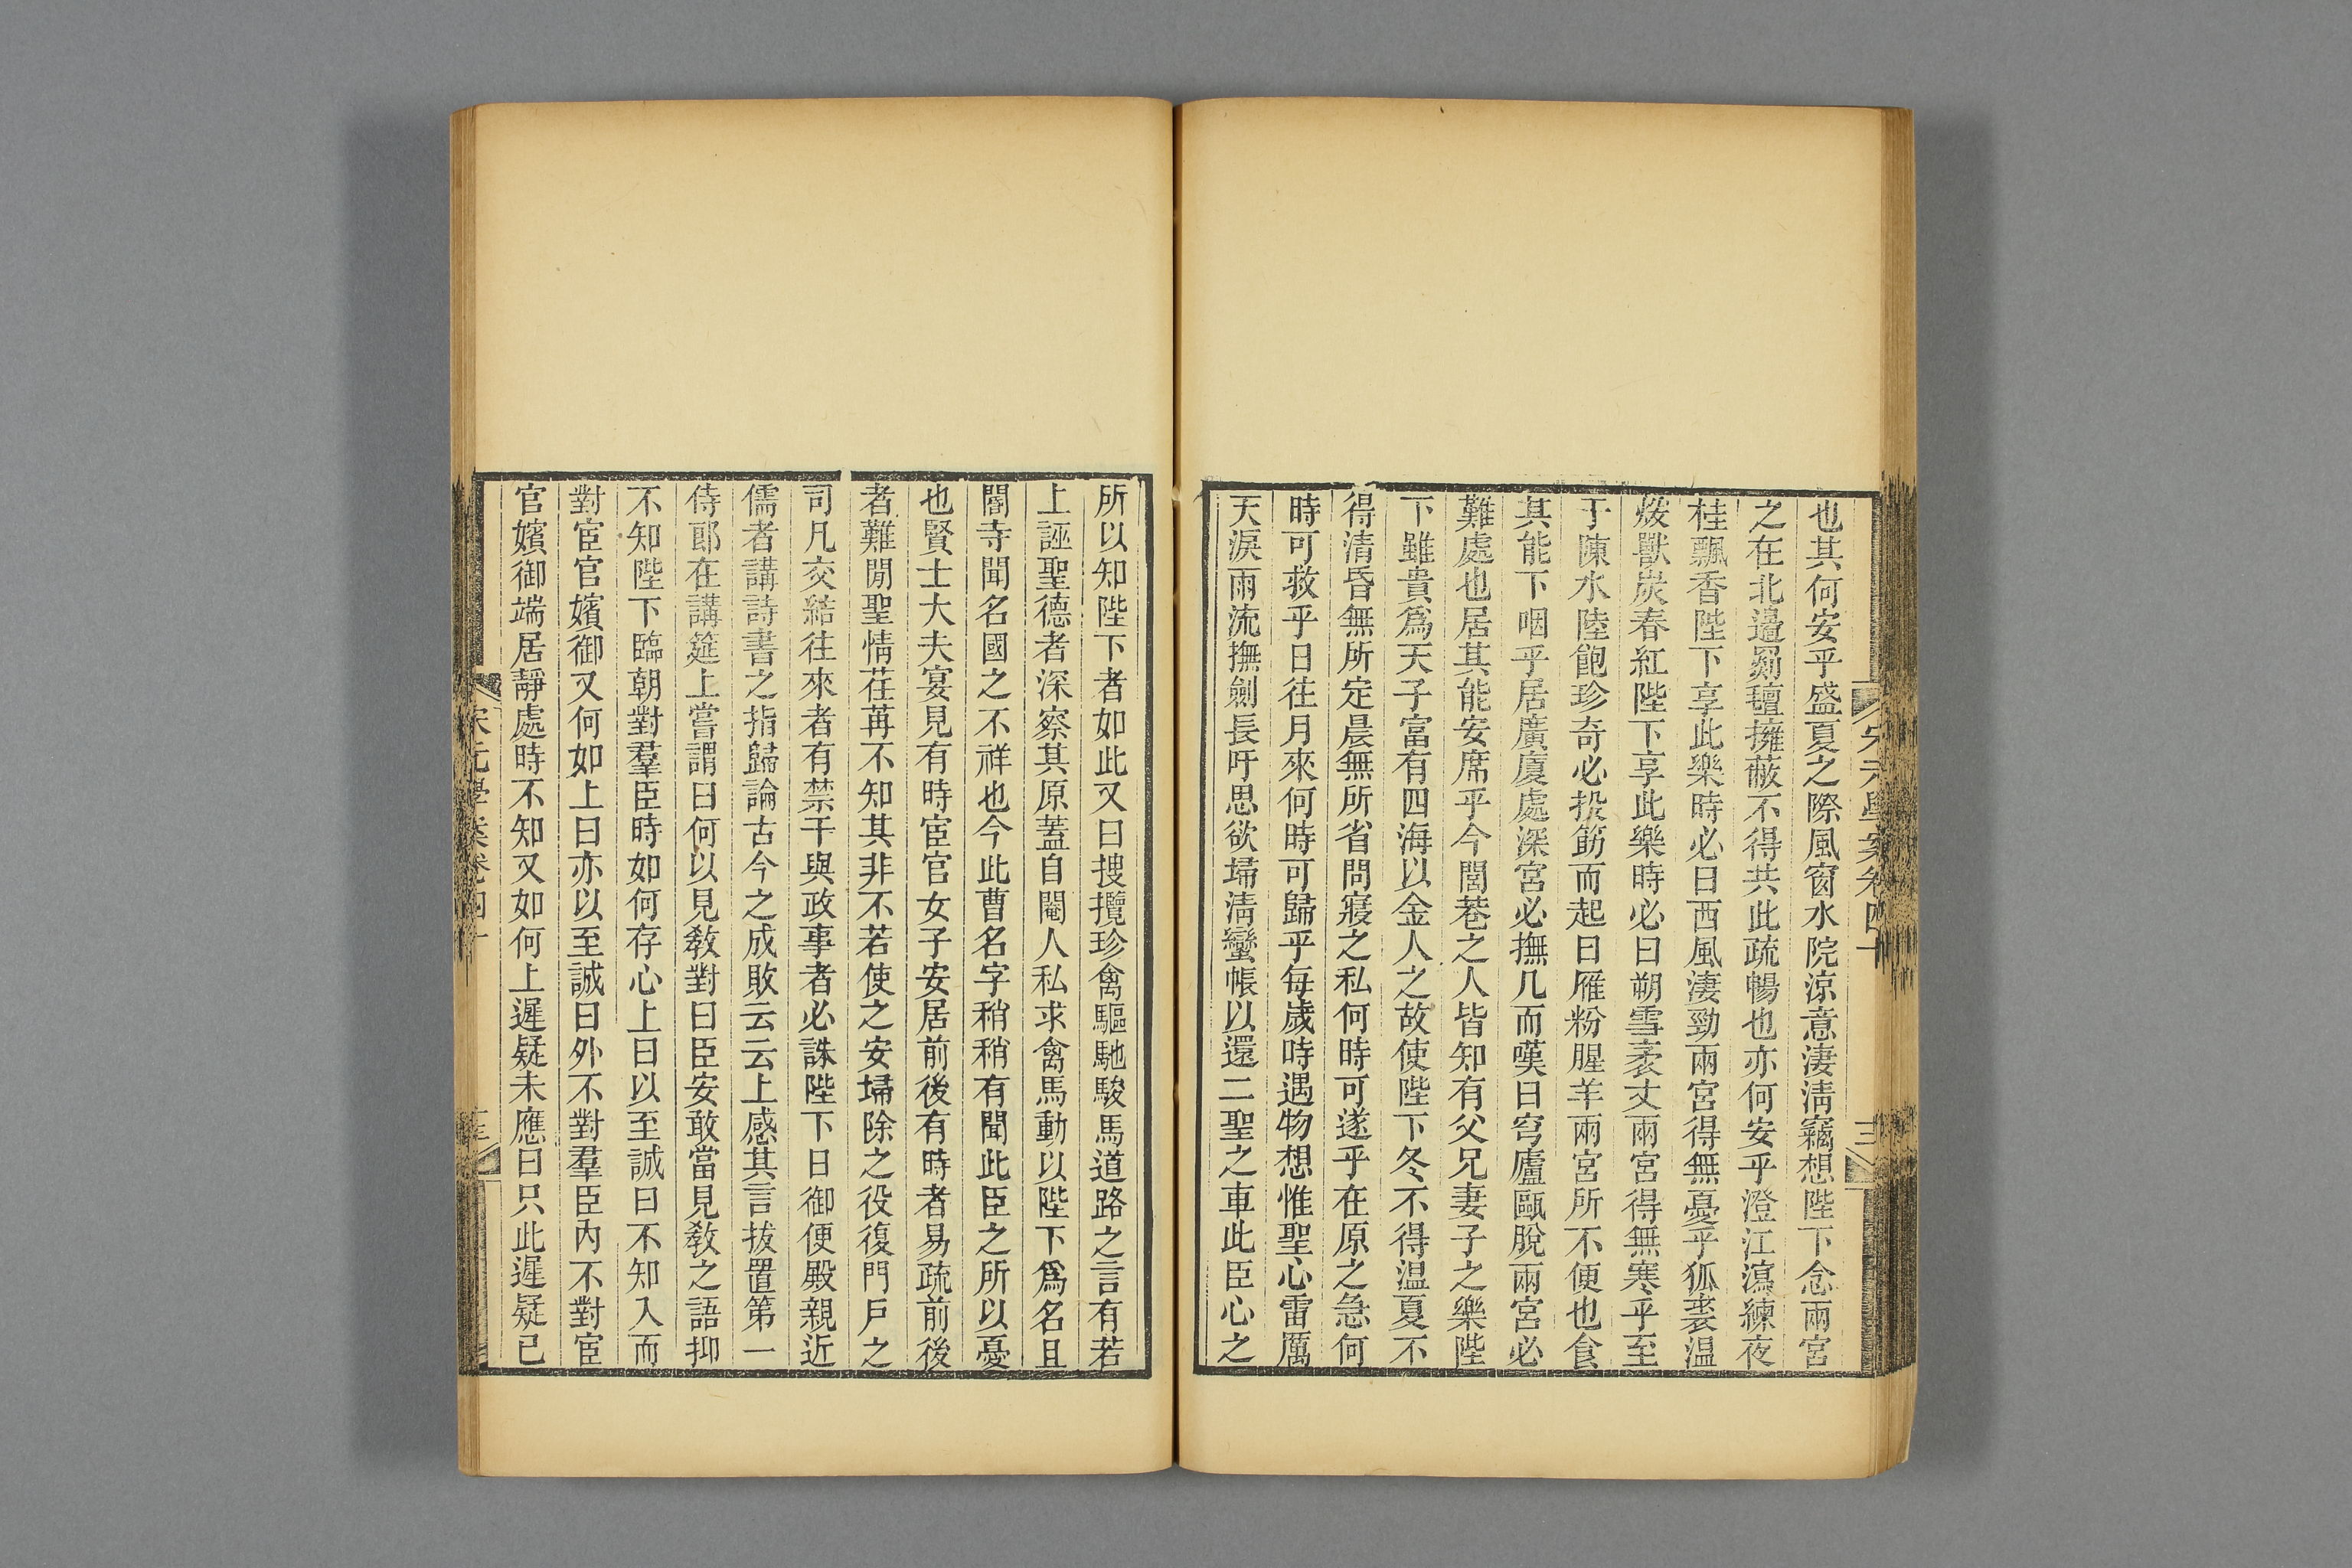 宋元學案卷四十
三
也其何安乎盛夏之際風窗水院涼意淒淸竊想陛下念兩宮
之在北邊罽氊擁蔽不得共此疏暢也亦何安乎澄江瀉練夜
桂飄香陛下享此樂時必曰西風淒勁兩宮得無憂乎狐裘温
煖獸炭春紅陛下享此樂時必曰朔雪袤丈兩宮得無寒乎至
于陳水陸飽珍奇必投筯而起曰雁粉腥羊兩宮所不便也食
其能下咽乎居廣廈處深宮必撫几而嘆曰穹廬甌脫兩宮必
難處也居其能安席乎今閭巷之人皆知有父兄妻子之樂陛
下雖貴爲天子富有四海以金人之故使陛下冬不得温夏不
得清昏無所定晨無所省問寢之私何時可遂乎在原之急何
時可救乎日往月來何時可歸乎每歲時遇物想惟聖心雷厲
天淚雨流撫劍長吁思欲埽淸蠻帳以還二聖之車此臣心之
所以知陛下者如此又曰搜攬珍禽驅馳駿馬道路之言有若
上誣聖德者深察其原蓋自閹人私求禽馬動以陛下爲名且
閽寺聞名國之不祥也今此曹名字稍稍有聞此臣之所以憂
也賢士大夫宴見有時宦官女子安居前後有時者易疏前後
者難閒聖情荏苒不知其非不若使之安埽除之役復門戶之
司凡交結往來者有禁干與政事者必誅陛下日御便殿親近
儒者講詩書之指歸論古今之成敗云云上感其言拔置第一
侍郎在講筵上嘗謂曰何以見敎對曰臣安敢當見敎之語抑
不知陛下臨朝對羣臣時如何存心上曰以至誠曰不知入而
對宦官嬪御又何如上曰亦以至誠曰外不對羣臣內不對宦
官嬪御端居靜處時不知又如何上遲疑未應曰只此遲疑已
宋元學案卷四十